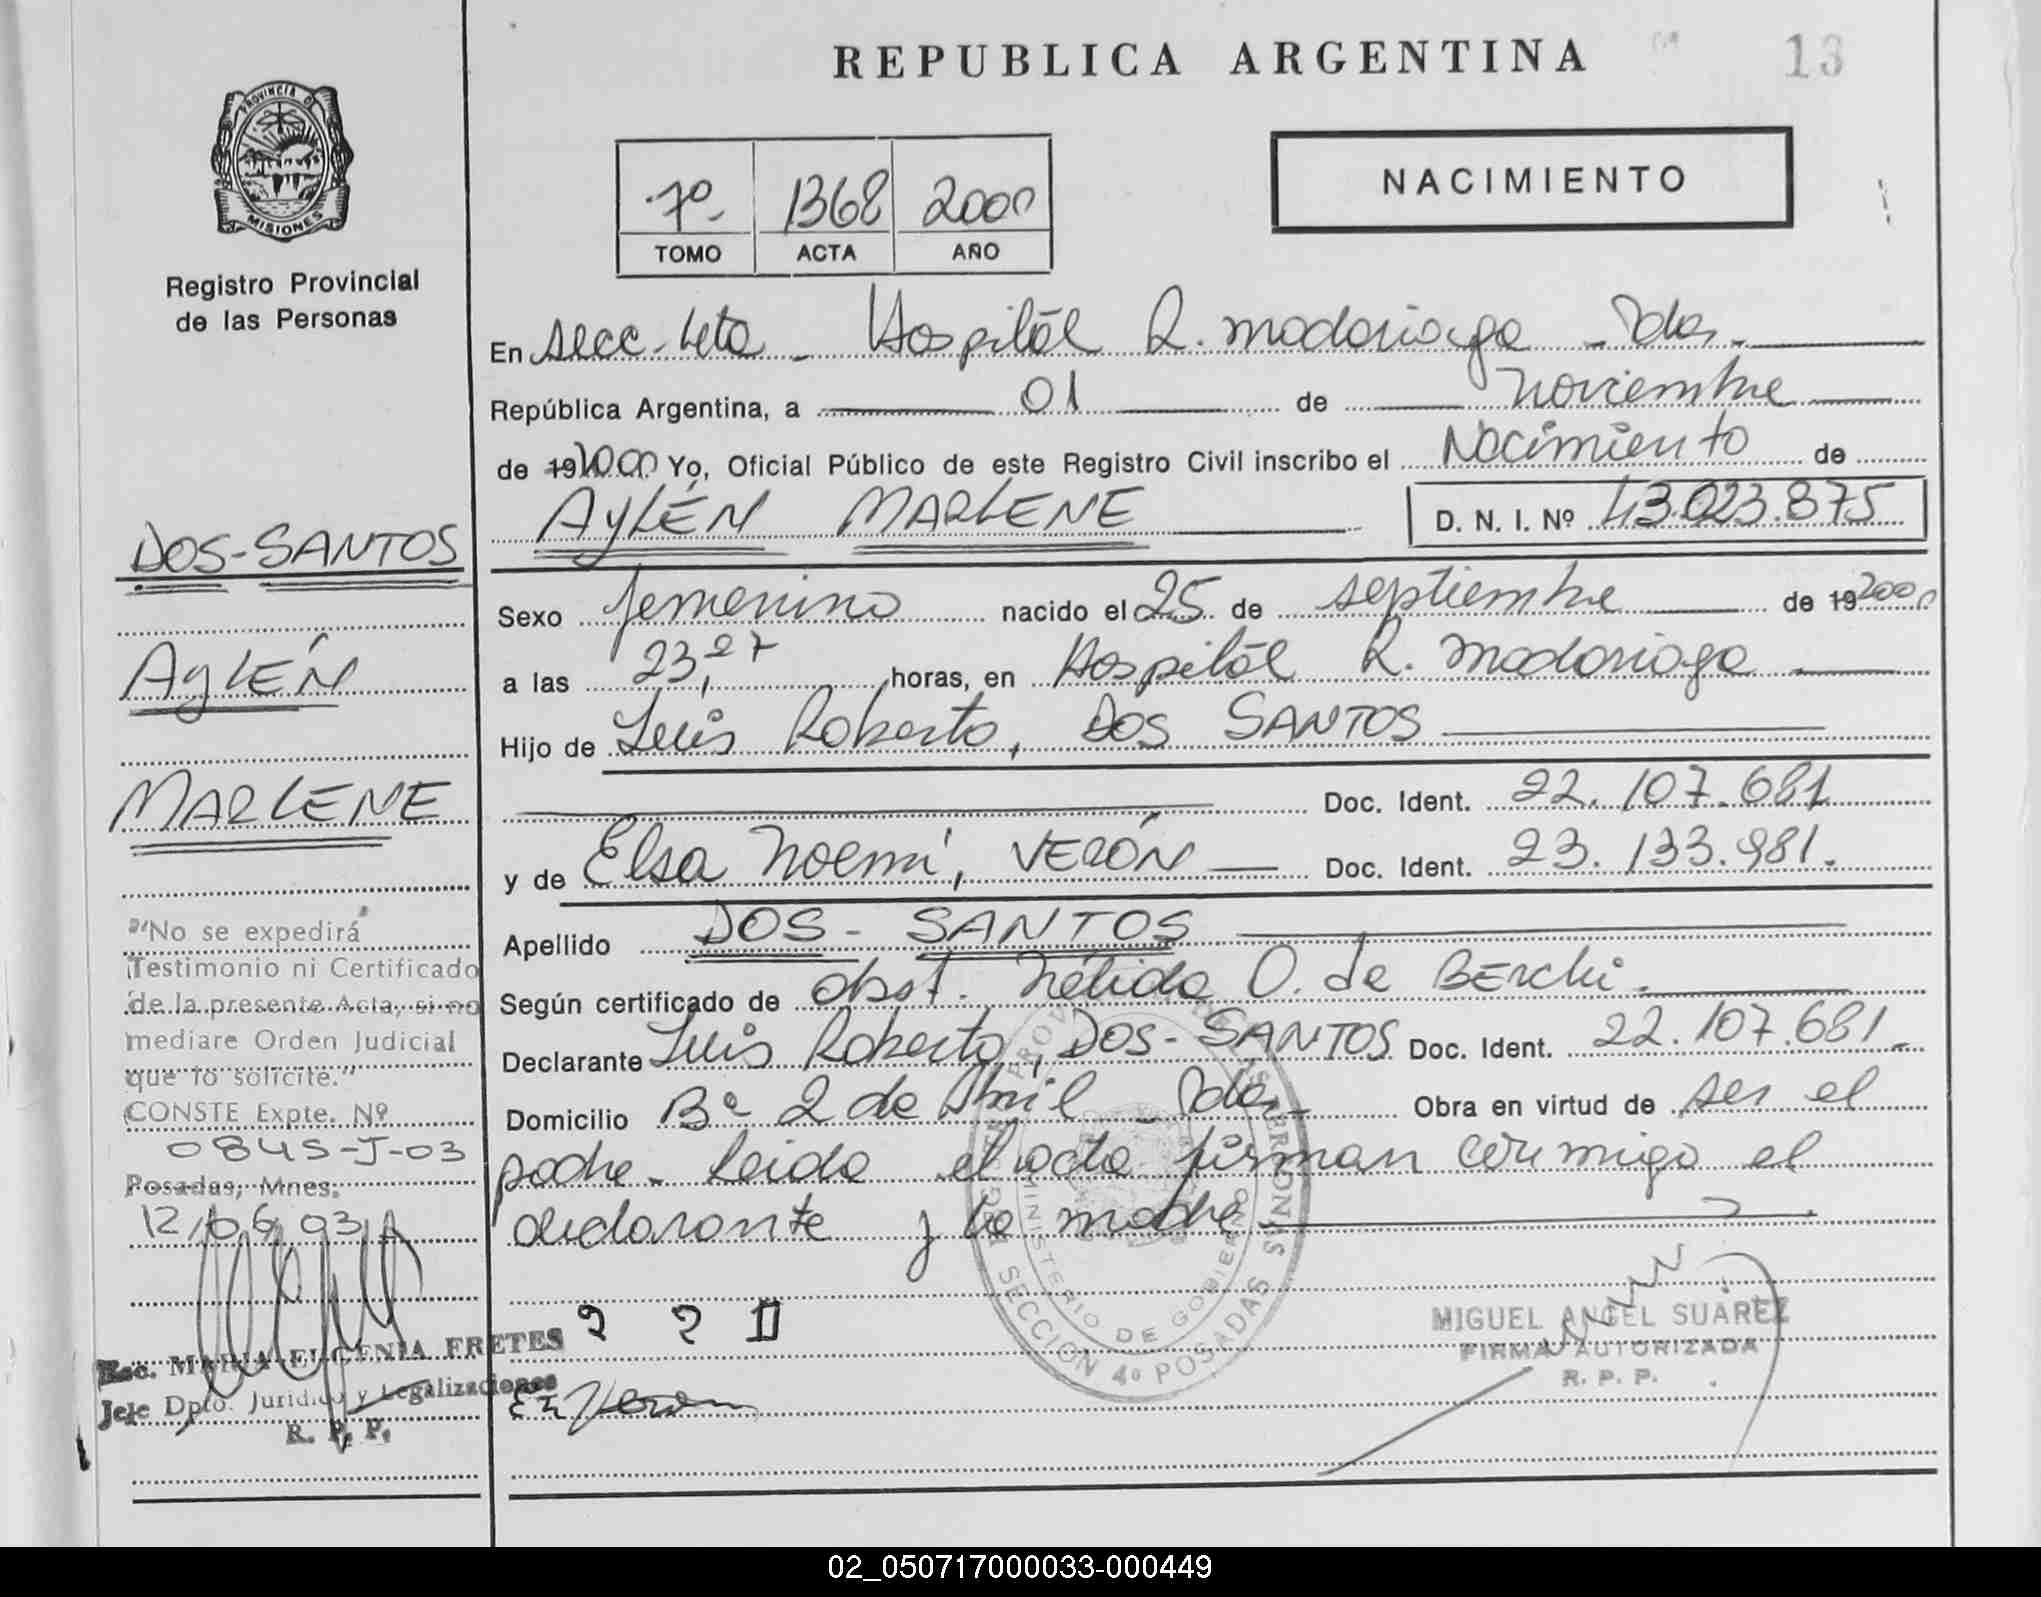 REPUBLICA ARGENTINA
13
PROVINCIA DE MISIONES
Registro Provincial
de las Personas
7º 1368 2000
TOMO ACTA AÑO
NACIMIENTO
En secc. 4ta - Hospital R. Madariaga - Pdas.
República Argentina, a 01 de noviembre
de 19 2000 Yo, Oficial Público de este Registro Civil inscribo el Nacimiento de
AYLÉN MARLENE D. N. I. Nº 43.023.875
Sexo femenino nacido el 25 de septiembre de 19 2000
a las 23,27 horas, en Hospital R. Madariaga
Hijo de Luis Roberto, DOS SANTOS
Doc. Ident. 22.107.681
y de Elsa Noemí, VERÓN Doc. Ident. 23.133.981.
Apellido DOS-SANTOS
Según certificado de obst. Nélida O. de BERchi.
Declarante Luis Roberto, DOS-SANTOS Doc. Ident. 22.107.681.
Domicilio Bº 2 de Abril - Pdas. Obra en virtud de ser el
padre. Leida el acta firman conmigo el
declarante y la madre
DOS-SANTOS
AYLÉN
MARLENE
"No se expedirá
Testimonio ni Certificado
de la presente Acta, si no
mediare Orden Judicial
que lo solicite."
CONSTE Expte. Nº
0845-J-03
Posadas, Mnes.
12/06/03
Esc. MARIA EUGENIA FRETES
Jefe Dpto. Juridico y Legalizaciones
R. P. P.
MINISTERIO DE GOBIERNO
SECCION 4º POSADAS
MIGUEL ANGEL SUAREZ
FIRMA AUTORIZADA
R. P. P.
02_050717000033-000449